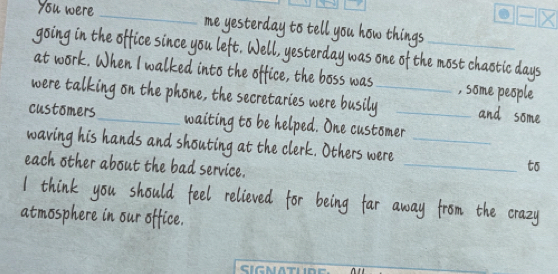 You were ________ me yesterday to tell you how things ________
going in the office since you left. Well, yesterday was one of the most chaotic days
at work. When I walked into the office, the boss was ________, some people
were talking on the phone, the secretaries were busily ________ and some
customers ________ waiting to be helped. One customer ________
waving his hands and shouting at the clerk. Others were ________ to
each other about the bad service.
I think you should feel relieved for being far away from the crazy
atmosphere in our office.
SIGNATURE: